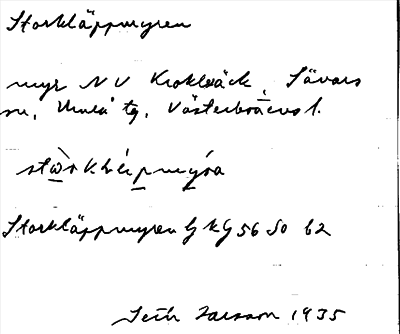 Storkläppmyren
myr NV Krokbäck, Sävars
sn, Umeå tg, Västerbottens l.
Storkläppmyren G kg 56 So b2
Seth Larsson 1935